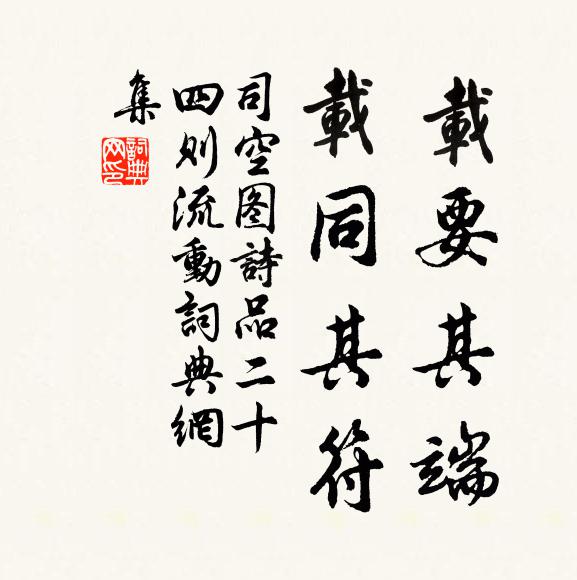 載要其端
載同其符
司空图詩品二十
四则流動詞典網
集
詞典
网印